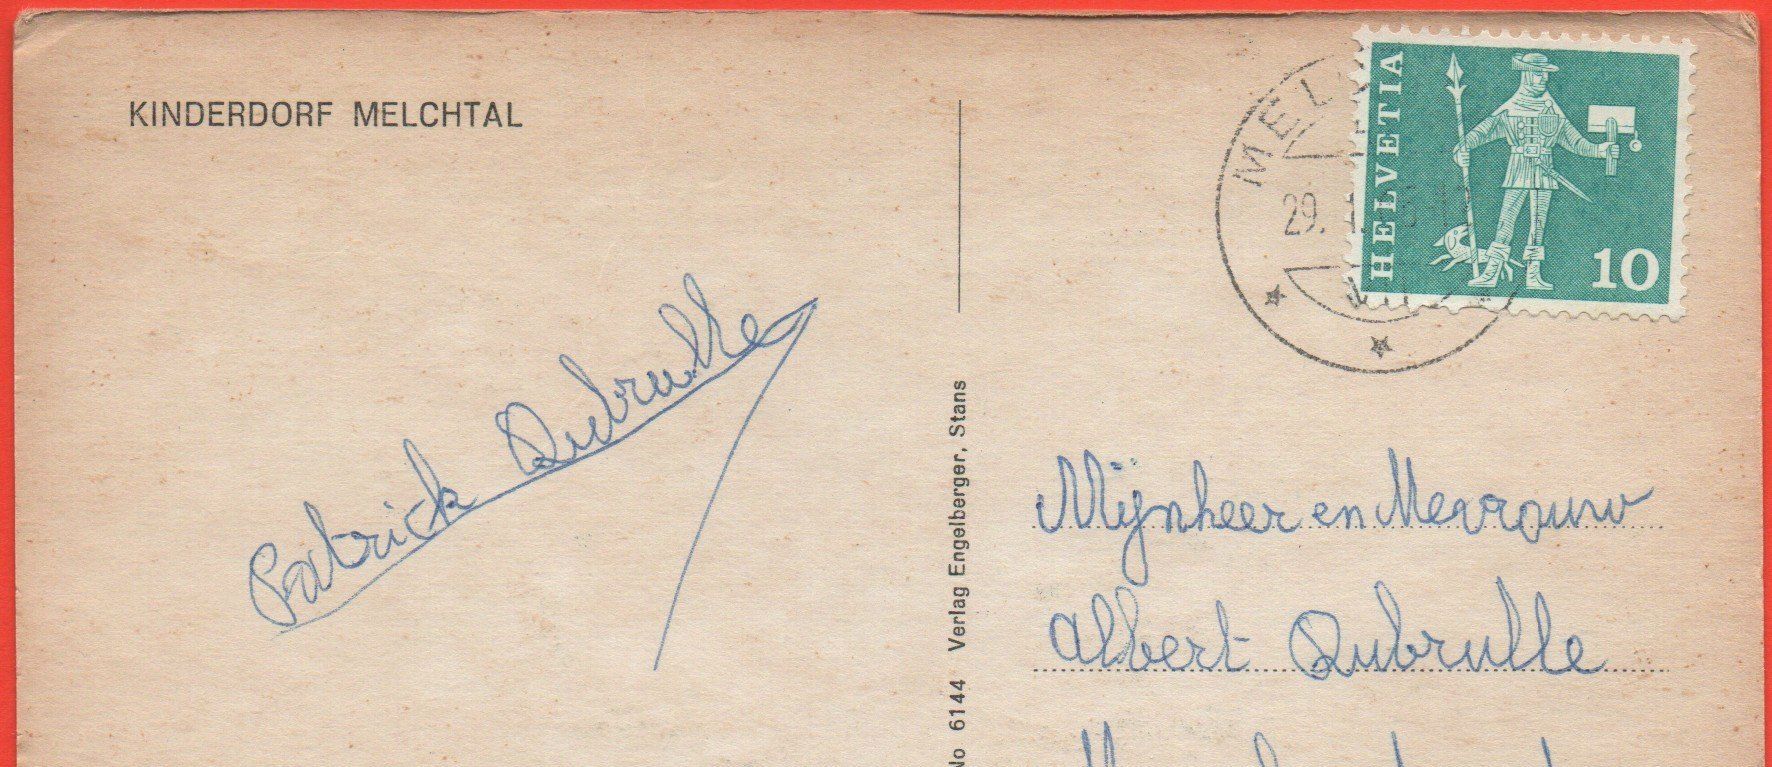 KINDERDORF MELCHTAL
Patrick Dubrulle
No 6144 Verlag Engelberger, Stans
HELVETIA
10
29.
Mijnheer en Mevrouw
Albert Dubrulle